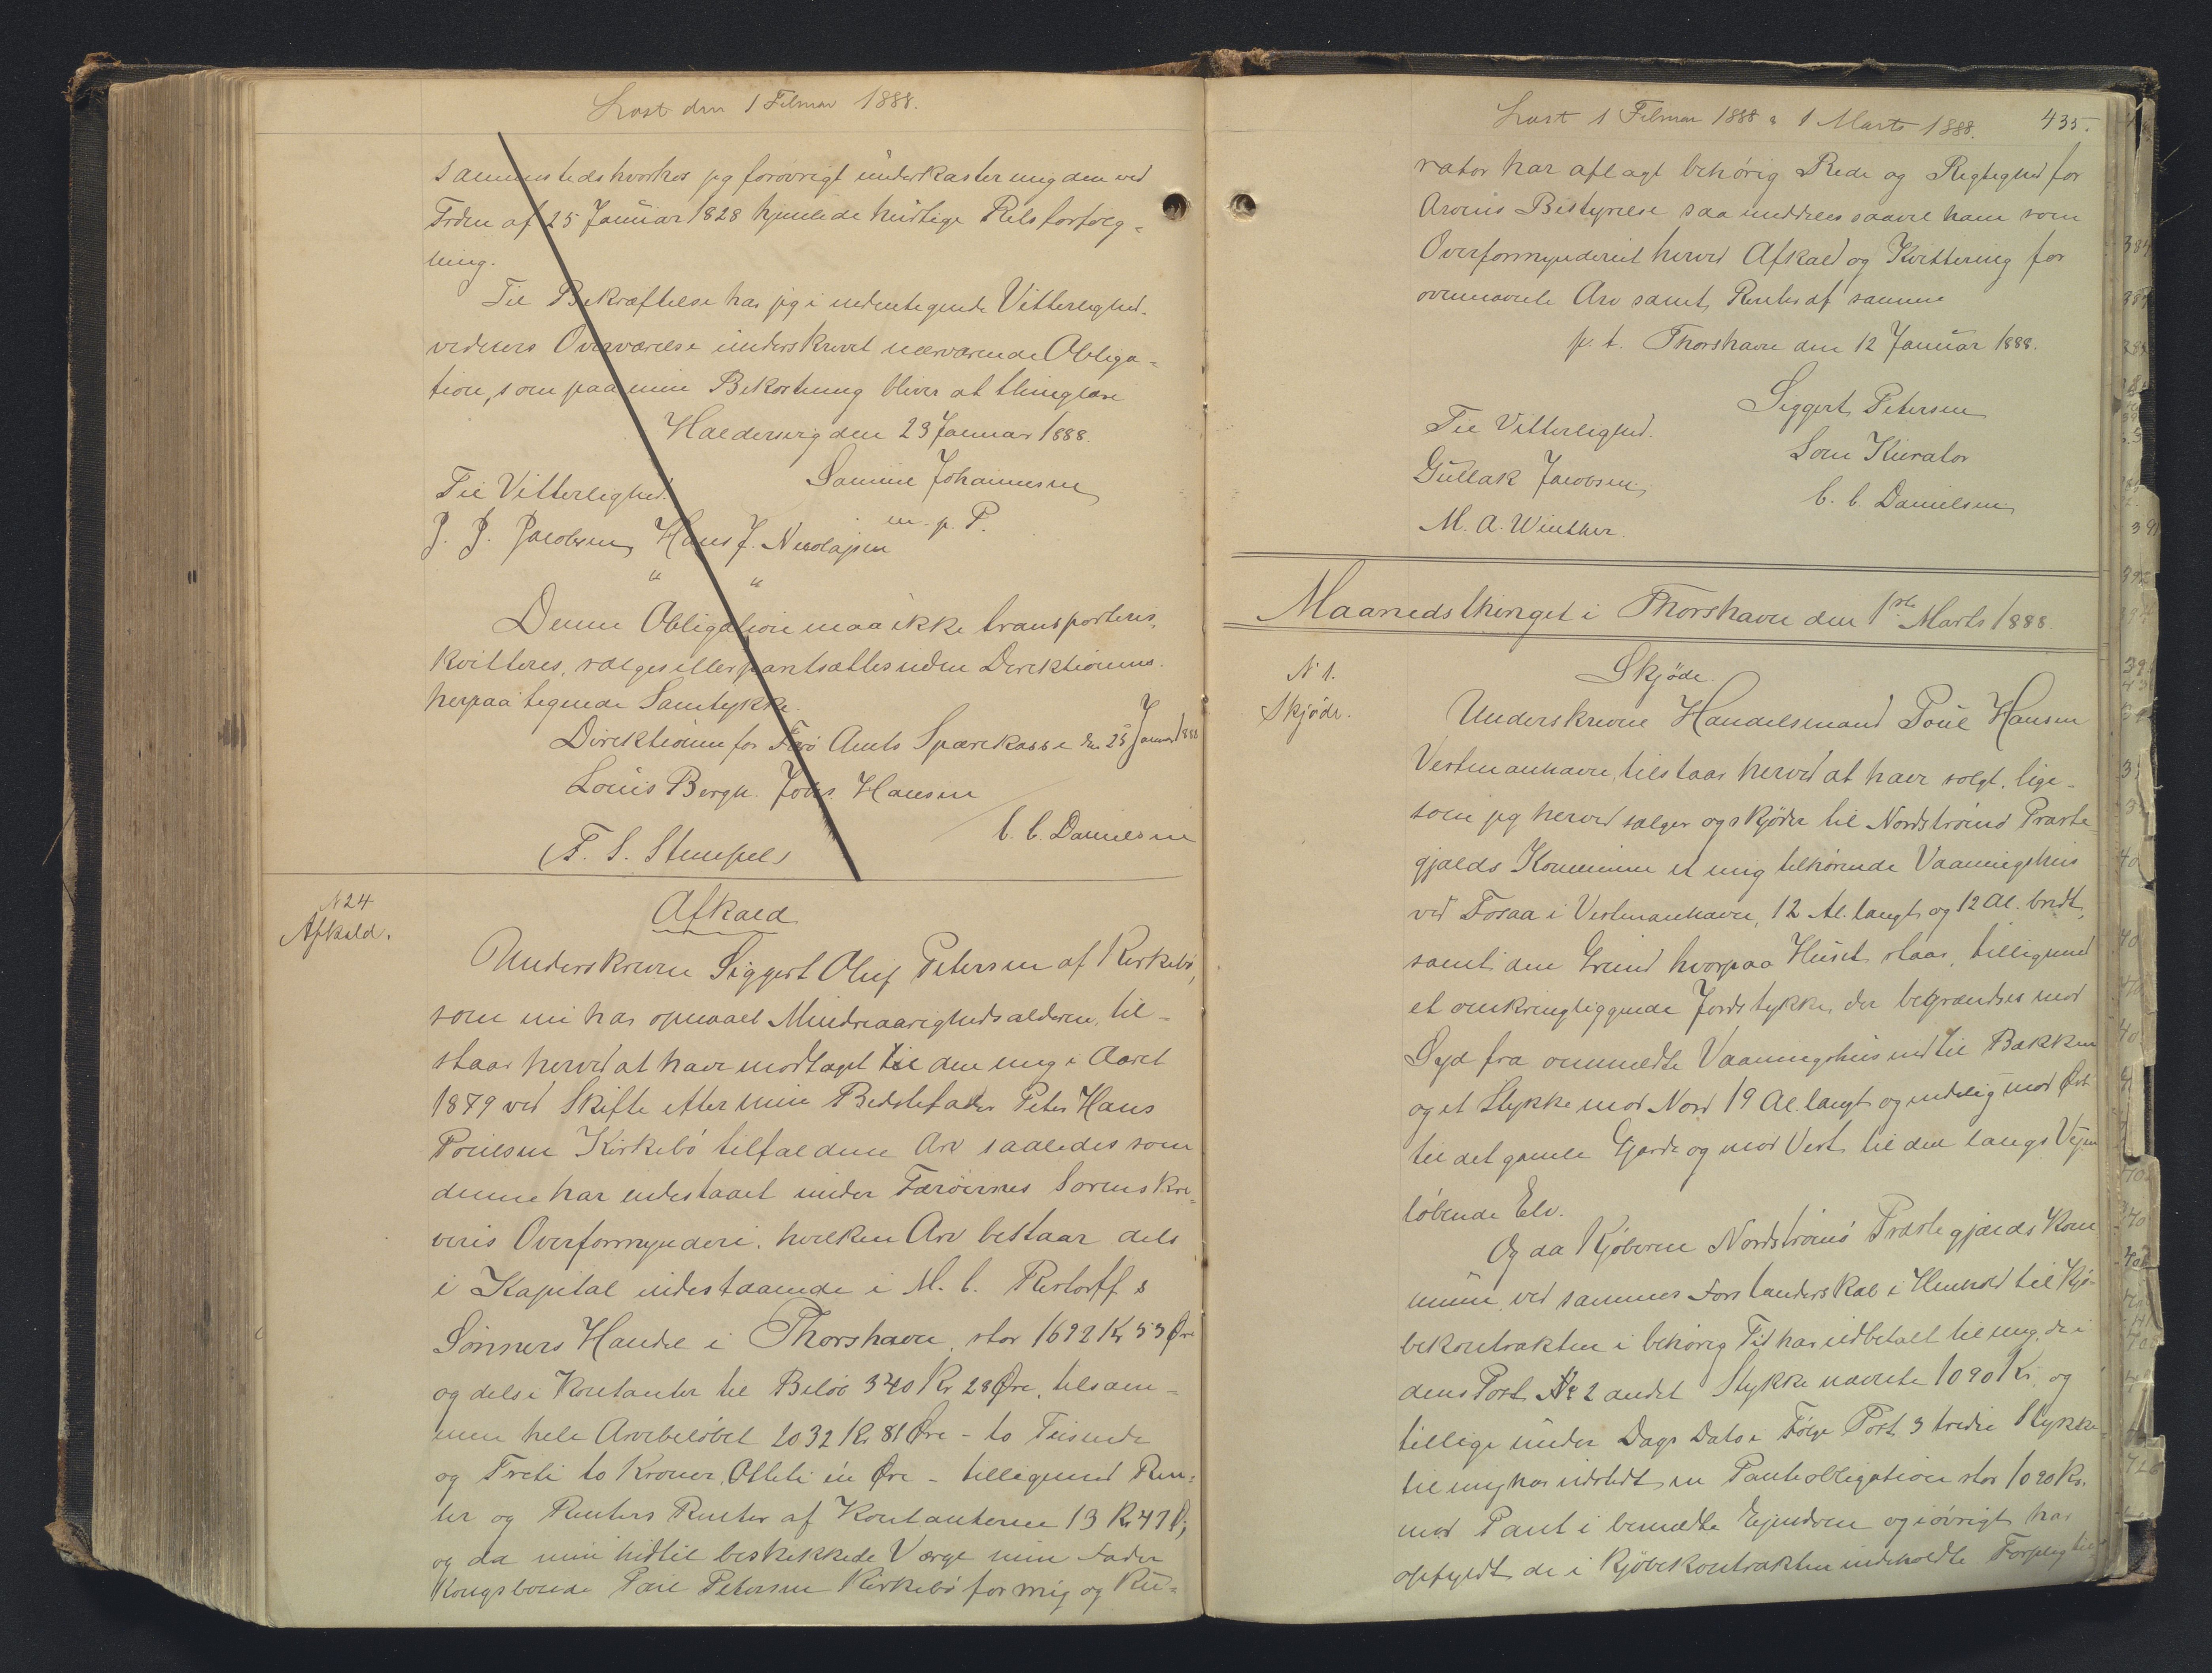 Læst den 1 Februar 1888.
sammesteds hvorhos jeg forøvrigt underkaster mig den ved
Frdn af 25 Januar 1828 hjemlede hurtige Retsforfølg-
ning.
Til Bekræftelse har jeg i undertegnede Vitterligheds-
vidners Overværelse underskrevet nærværende Obliga-
tion, som paa min Bekostning bliver at thinglæse
Haldersvig den 23 Januar 1888.
Samuel Johannesen
m. p. P.
Til Vitterlighed.
J. J. Jacobsen Hans J. Nicolajsen
" "
Denne Obligation maa ikke transporteres,
kvitteres, sælges eller pantsættes uden Direktionens
herpaa tegnede Samtykke.
Direktionen for Færø Amts Sparekasse den 25 Januar 1888
Louis Bergh. Johs. Hansen
C. C. Danielsen
(F. S. Stempel)
N 24
Afkald.
Afkald
Underskrevne Siggert Oluf Petersen af Kirkebø,
som nu har opnaaet Mindreaarighedsalderen, til-
staar herved at have modtaget den mig i Aaret
1879 ved Skifte efter min Bedstefader Peter Hans
Poulsen Kirkebø tilfaldene Arv saaledes som
denne har indestaaet under Færøernes Sorenskri-
veris Overformynderi, hvilken Arv bestaar dels
i Kapital indestaaende i M. C. Restorff &
Sønners Handel i Thorshavn, stor 1692 Kr 53 Øre
og dels i Kontanter til Beløb 340 Kr. 28 Øre, tilsam-
men hele Arvebeløbet 2032 Kr 81 Øre - to Tusinde
og Treti to Kroner, Otteti én Øre - tilligemed Ren-
ter og Renters Renter af Kontanterne 13 Kr 47 Ø;
og da min hidtil beskikkede Værge min Fader
Kongsbonde Poul Petersen Kirkebø for mig og Ku-
Læst 1 Februar 1888 & 1 Marts 1888.
435.
rator har aflagt behørig Rede og Rigtighed for
Arvens Bestyrelse saa meddeles saavel ham som
Overformynderiet herved Afkald og Kvittering for
ovennævnte Arv samt Renter af samme
p. t. Thorshavn den 12 Januar 1888.
Siggert Petersen
Som Kurator
C. C. Danielsen
Til Vitterlighed.
Gullak Jacobsen
M. A. Winther.
Maanedsthinget i Thorshavn den 1ste Marts 1888.
N 1.
Skjøde.
Skjøde.
Underskrevne Handelsmand Poul Hansen
Vestmanhavn, tilstaar herved at have solgt, lige-
som jeg herved sælger og skjøder til Nordstrømø Præste-
gjælds Kommune et mig tilhørende Vaaningshus
ved Fosaa i Vestmanhavn, 12 Al. langt og 12 Al. bredt,
samt den Grund hvorpaa Huset staar, tilligemed
et omkringliggende Jordstykke, der begrændses mod
Syd fra ommeldte Vaaningshus ned til Bakken
og et Stykke mod Nord 19 Al. langt og endelig mod Øst
til det gamle Gjærde og mod Vest til den langs Vejen
løbende Elv.
Og da Kjøberen Nordstrømø Præstegjælds Kom
mune ved sammes Forstanderskab i Henhold til Kjø-
bekontrakten i behørig Tid har udbetalt til mig, de i
dens Post No 2 andet Stykke nævnte 1090 Kr. og
tillige under Dags Dato i Følge Post 3 tredie Stykke
til mig har udstedt en Panteobligation stor 1090 Kr.
mod Pant i bemeldte Ejendom og iøvrigt har
opfyldt de i Kjøbekontrakten indeholdte Forpligtel